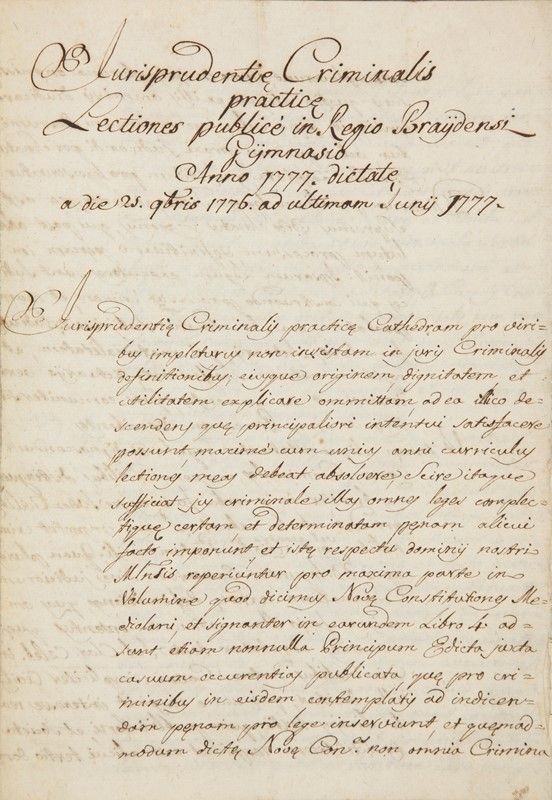 Jurisprudentię Criminalis
practicę
Lectiones publicè in Regio Braÿdensi
Gÿmnasio
Anno 1777. dictatę
a die 25. 9bris 1776. ad ultimam Junij 1777.
Jurisprudentię Criminalis practicę Cathedram pro viri-
bus impleturus non insistam in juris Criminalis
definitionibus, ejusque originem dignitatem et
utilitatem explicare ommittam ad ea illico de-
scendens quę principaliori intentui satisfacere
possunt maximè cum unius anni curriculus
lectiones meas debeat absolvere Scire itaque
sufficiat jus criminale illas omnes leges complec-
tique certam et determinatam pęnam alicui
facto imponunt et istę respectu dominij nostri
Mlnsis reperiuntur pro maxima parte in
Volumine quod dicimus Novę Constitutiones Me-
diolani, et signanter in earundem Libro 4. ad-
sunt etiam nonnulla Principum Edicta juxta
casuum occurentias publicata quę pro cri-
minibus in eisdem contemplatis ad indicen-
dam pęnam pro lege inserviunt et quęmad-
modum dictę Novę Con.s non omnia Crimina